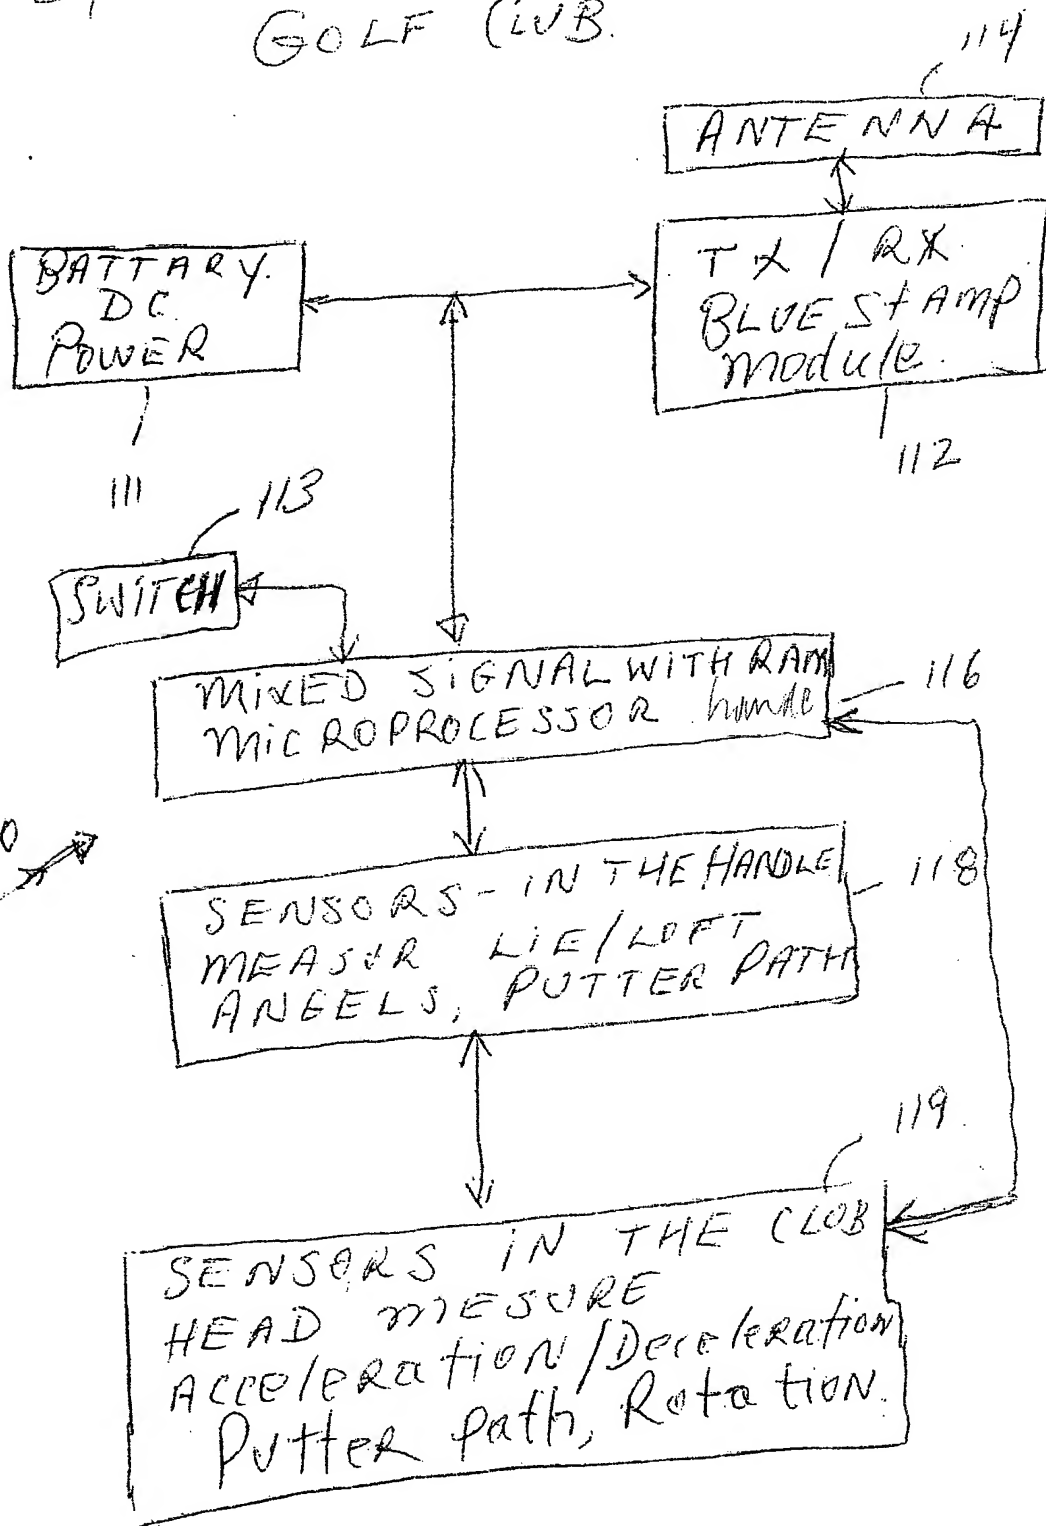 GOLF CLUB.
114
ANTENNA
BATTARY.
DC
POWER
TX / RX
BLUE StAMP
module.
111
112
113
SWITCH
MIXED SIGNAL WITH RAM
MICROPROCESSOR
116
SENSORS - IN THE HANDLE
MEASUR LIE/LOFT
ANGELS, PUTTER PATH
118
119
SENSORS IN THE CLUB
HEAD MESURE
AcceleRation/Deceleration
Putter path, Rotation.